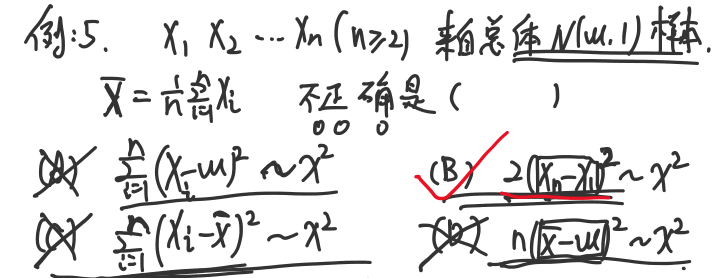 例:5. X₁ X₂ … Xₙ (n≥2) 来自总体 N(μ,1) 样本.
X̄ = 1/n ∑ᵢ₌₁ⁿ Xᵢ 不正确是 ( )
(A) ∑ᵢ₌₁ⁿ (Xᵢ-μ)² ~ χ² (B) 2(Xₙ-X₁)² ~ χ²
(C) ∑ᵢ₌₁ⁿ (Xᵢ-X̄)² ~ χ² (D) n(X̄-μ)² ~ χ²